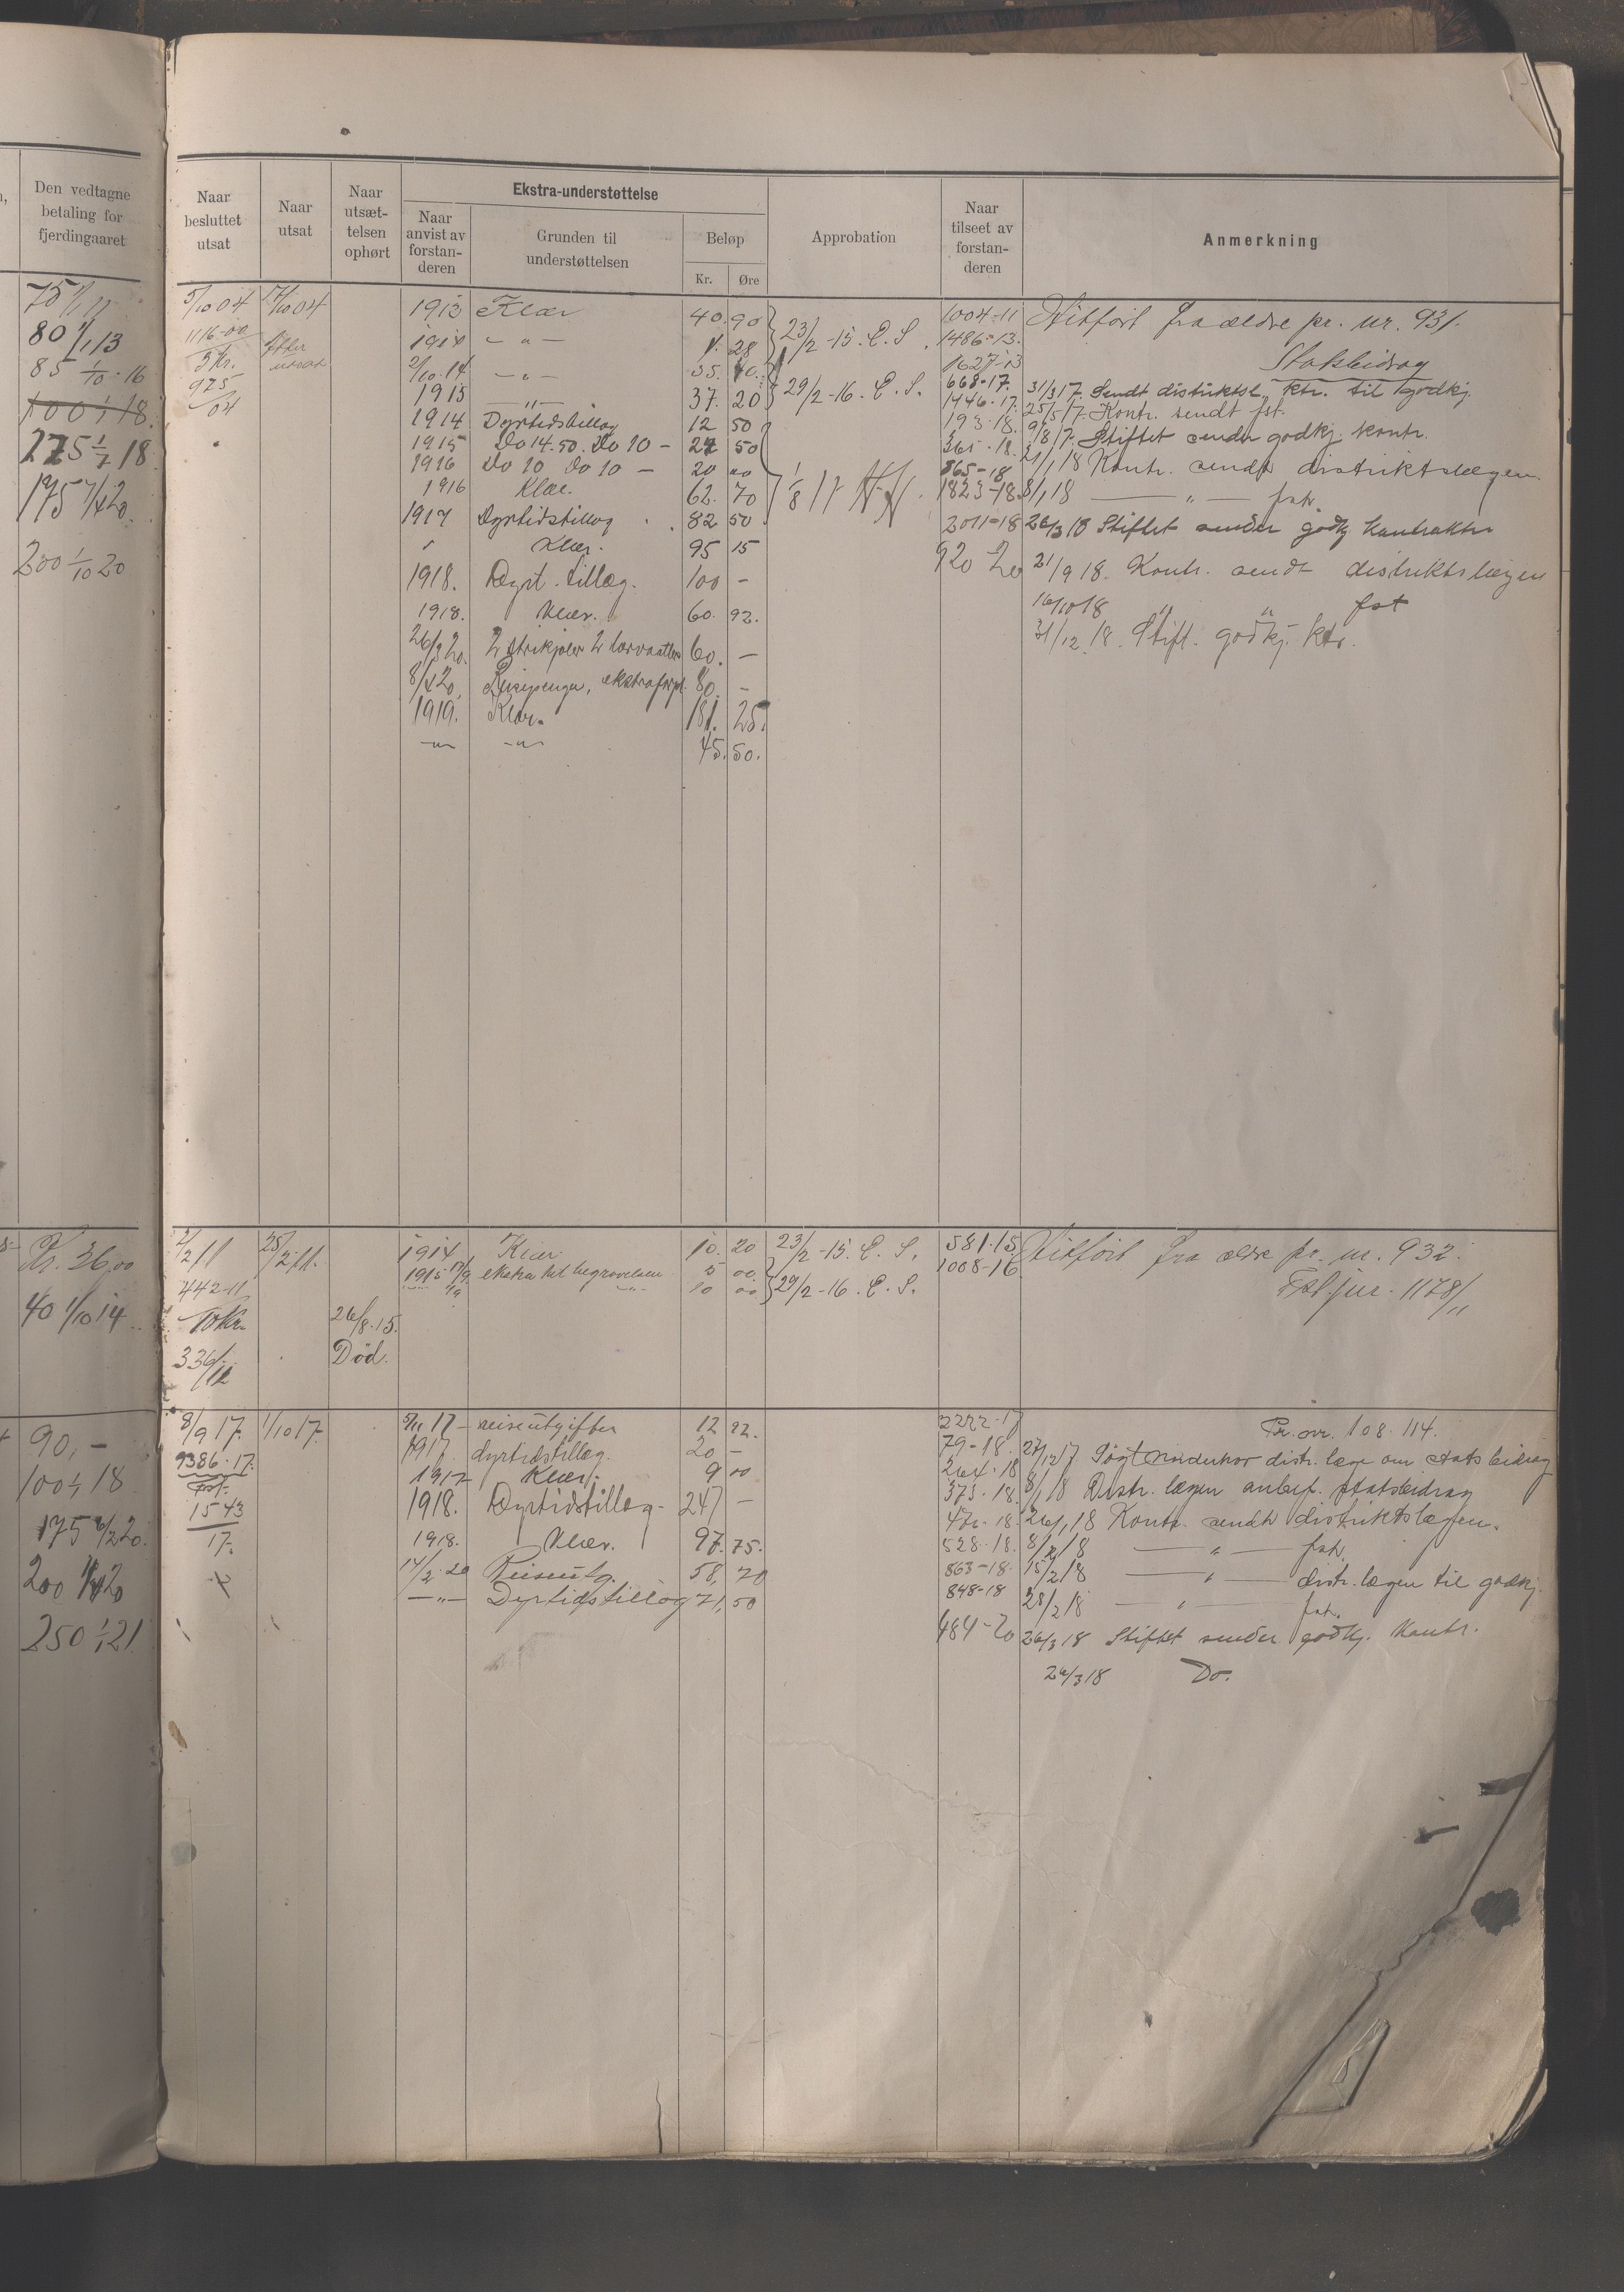 Den vedtagne
betaling for
fjerdingaaret
Naar
besluttet
utsat
Naar
utsat
Naar
utsæt-
telsen
ophørt
Ekstra-understøttelse
Naar
anvist av
forstan-
deren
Grunden til
understøttelsen
Beløp
Kr. Øre
Approbation
Naar
tilseet av
forstan-
deren
Anmerkning
75 1/1 11
80 1/1 13
85 1/10 - 16
100 1/1 18.
275 1/7 18
175 1/4 20.
200 1/10 20
5/10 04 17/10 04
1116-00
5 Kr.
975
/04
Efter
utsat
1913 Klær 40. 90
1914 - " - 1. 28
2/10.14 - " - 35. 40.
1915 - " - 37. 20
1914 Dyrtidstillæg 12 50
1915 Do 14.50. Do 10 - 24 50
1916 Do 10 Do 10 - 20 00
1916 Klær. 62. 70
1917 Dyrtidstillæg 82 50
" Klær. 95 15
1918. Dyrt. tillæg. 100 -
1918. Klær. 60. 92.
26/3 20. 60. -
8/4 20. Reisepenger, 80. -
1919. Klær. 181. 25.
-"- -"- 45. 50.
23/2 - 15. E. S.
29/2 - 16. E. S.
1/8 17
1004-11
1486-13.
1627-13
668-17.
1446-17.
193-18.
365-18.
865-18
1823-18.
2011-18
920-20
Hitført fra ældre pr. nr. 931.
Statsbidrag
31/3 17. Sendt distriktsl. ktr. til godkj.
25/5 17. Kontr. sendt fst.
9/8 17. Stiftet sender godkj. kontr.
21/1 18 Kontr. sendt distriktslægen
8/1 18 - " - fst.
26/3 18 Stiftet sender godkj. kontrakter
21/9 18. Kontr. sendt distriktslægen
16/10 18 " " fst
31/12 18. Stift. godkj. ktr.
Kr. 36,00
40 1/10 14
2/2 11 25/2 11.
442-11
10 Kr.
336/12
26/8.15.
Død.
1914 Klær 10. 20
1915 17/9 ekstra til begravelsen 5 00.
10 00
23/2 - 15. E. S.
29/2 - 16. E. S.
581-15
1008-16
Hitført fra ældre pr. nr. 932.
Fst. jur. 1178/11
90,-
100 1/1 18
175 20.
200 20
250 1/1 21
8/9 17. 1/10 17.
9386-17.
Fst.
1543
17.
5/11 17 - reiseutgifter 12 22.
1917. dyrtidstillæg. 20 -
1917 Klær. 9 00
1918. Dyrtidstillæg - 247 -
1918. Klær. 97. 75.
14/2 20 Reiseutg. 58, 70
- " - Dyrtidstillæg 71, 50
2222-17
79-18.
264-18
373-18.
476-18.
528-18.
863-18.
848-18
484-20
Pr. ovr. 108. 114.
27/12 17 Søgt distr. læge om statsbidrag
8/1 18 Distr. lægen anbef. statsbidrag
26/1 18 Kontr. sendt distriktslægen.
8/2 18 - " - fst.
15/2 18 - " - distr. lægen til godkj.
28/2 18 - " - fst.
26/3 18 Stiftet sender godkj. kontr.
26/3 18 Do.